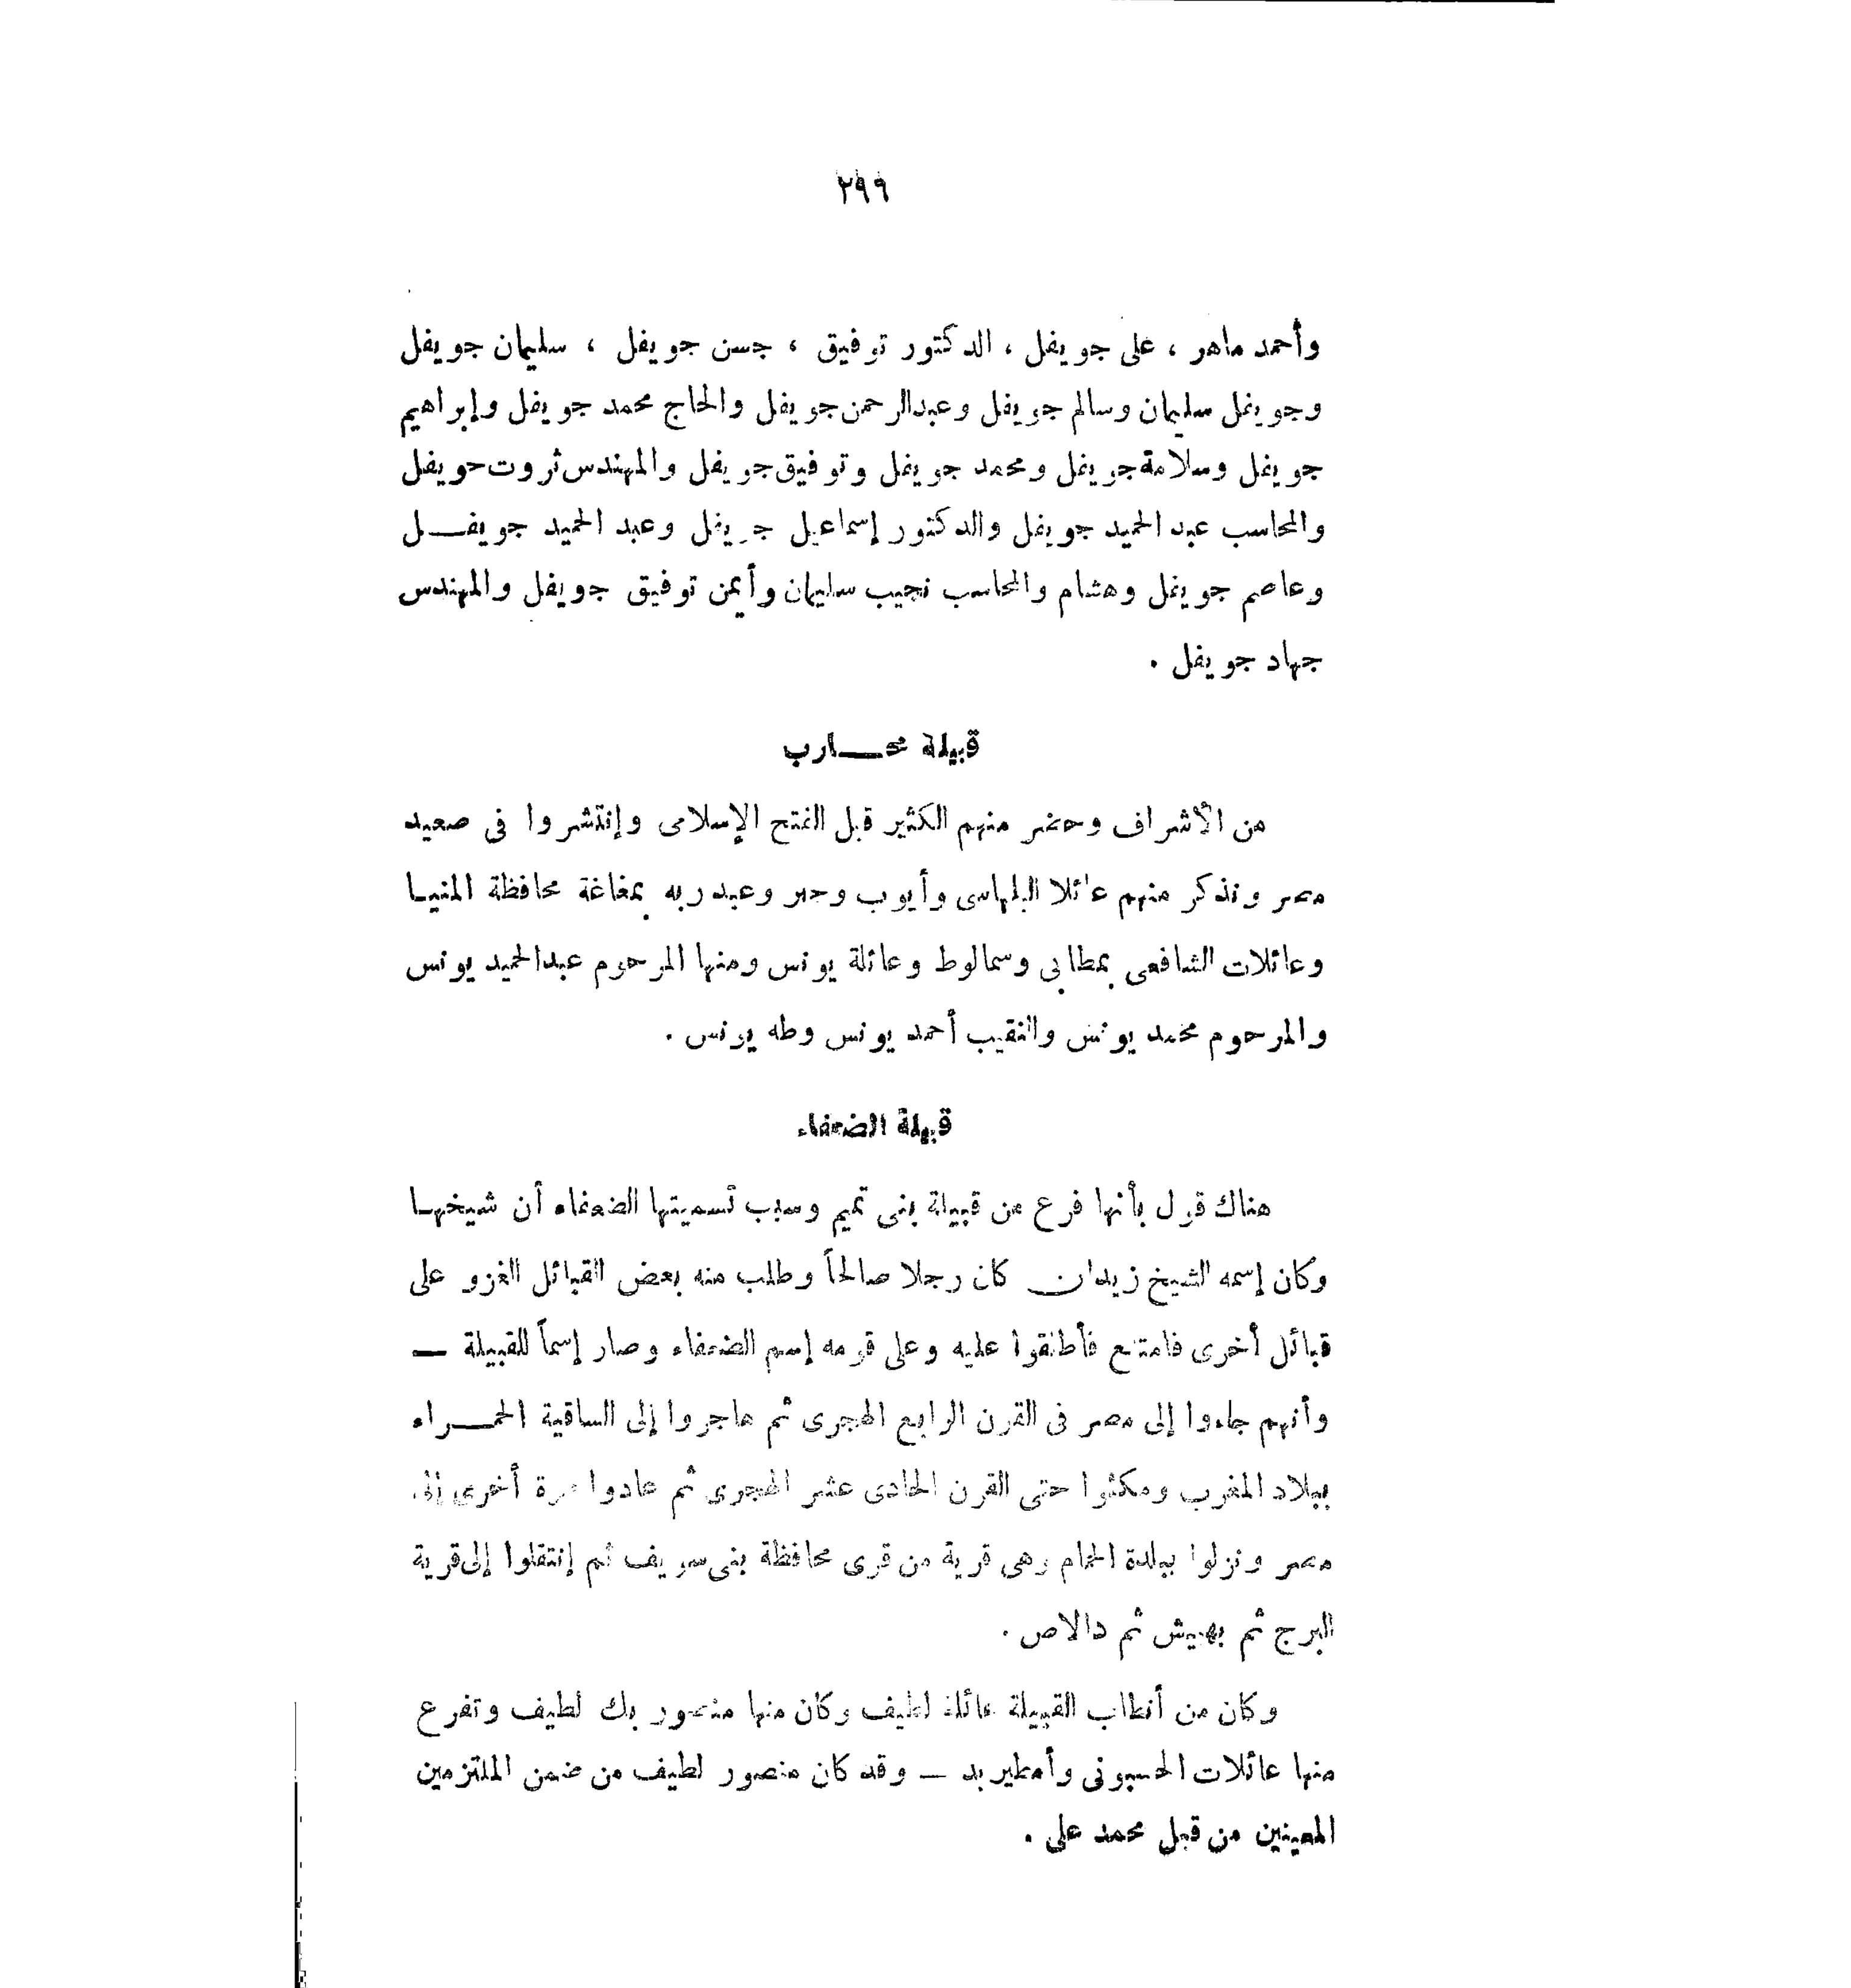 ٢٩٩
وأحمد ماهر ، على جويفل ، الدكتور توفيق ، جسن جويفل ، سليمان جويفل
وجويفل سليمان وسالم جويفل وعبدالرحمن جويفل والحاج محمد جويفل وإبراهيم
جويفل وسلامة جويفل ومحمد جويفل وتوفيق جويفل والمهندس ثروت حويفل
والمحاسب عبد الحميد جويفل والدكتور إسماعيل جويفل وعبد الحميد جويفــل
وعاصم جويفل وهشام والمحاسب نجيب سليمان وأيمن توفيق جويفل والمهندس
جهاد جويفل .
قبيلة محــارب
من الأشراف وحضر منهم الكثير قبل الفتح الإسلامى وإنتشروا فى صعيد
مصر ونذكر منهم عائلا البلهاسى وأيوب وجبر وعبد ربه بمغاغة محافظة المنيــا
وعائلات الشافعى بمطاى وسمالوط وعائلة يونس ومنها المرحوم عبدالحميد يونس
والمرحوم محمد يونس والنقيب أحمد يونس وطه يونس .
قبيلة الضعفاء
هناك قول بأنها فرع من قبيلة بنى تميم وسبب تسميتها الضعفاء أن شيخهــا
وكان إسمه الشيخ زيدان كان رجلا صالحاً وطلب منه بعض القبائل الغزو على
قبائل أخرى فامتنع فأطلقوا عليه وعلى قومه إسم الضعفاء وصار إسماً للقبيلة —
وأنهم جاءوا إلى مصر فى القرن الرابع الهجرى ثم هاجروا إلى الساقية الحمــراء
ببلاد المغرب ومكثوا حتى القرن الحادى عشر الهجرى ثم عادوا مرة أخرى إلى
مصر ونزلوا ببلدة الحمام وهى قرية من قرى محافظة بنى سويف ثم إنتقلوا إلى قرية
البرج ثم بهبيش ثم دالاص .
وكان من أقطاب القبيلة عائلة لطيف وكان منها منصور بك لطيف وتفرع
منها عائلات الحسبونى وأمطيربد — وقد كان منصور لطيف من ضمن الملتزمين
المعينين من قبل محمد على .